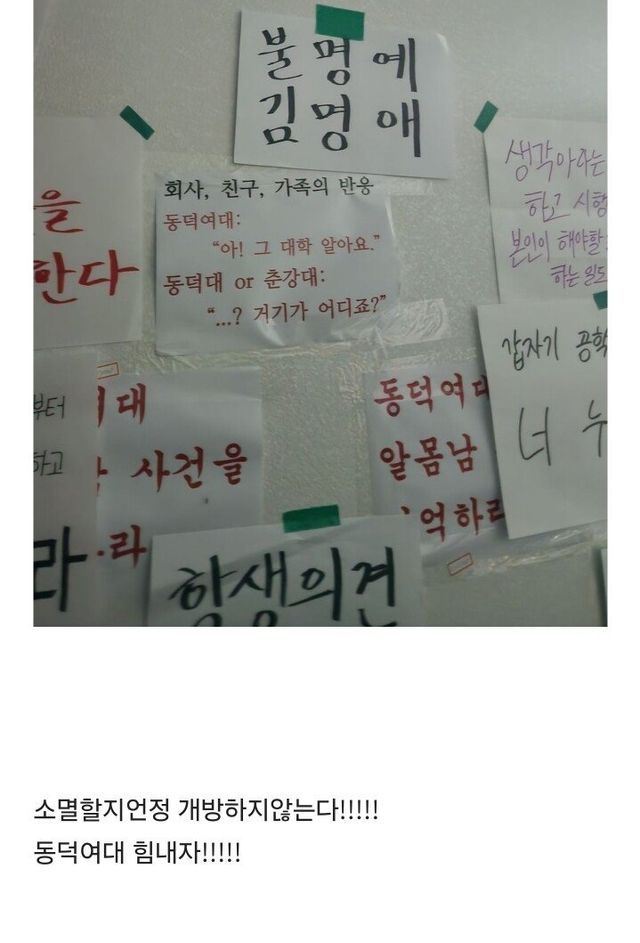 불명예
김명애
회사, 친구, 가족의 반응
동덕여대:
"아! 그 대학 알아요."
동덕대 or 춘강대:
"...? 거기가 어디죠?"
을
한다
생각이라는
하고 시행
본인이 해야할
하는 일도
갑자기 공학
너 누
부터
하고
라
대
사건을
라
동덕여대
알몸남
억하라
학생의견
소멸할지언정 개방하지않는다!!!!!
동덕여대 힘내자!!!!!